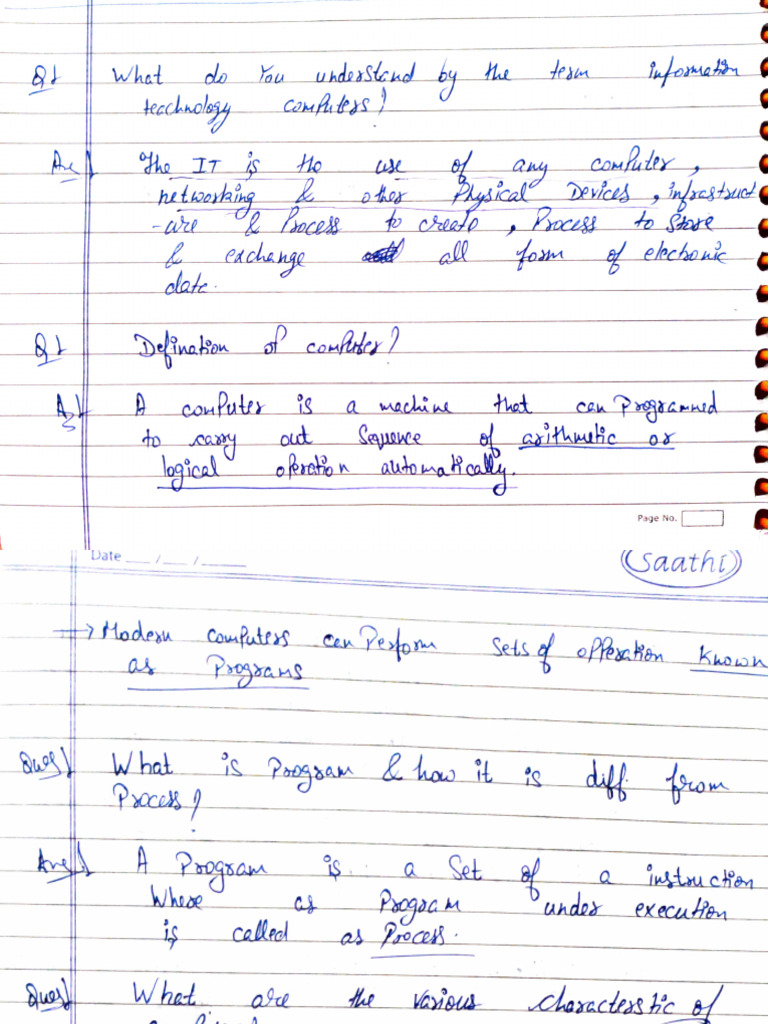 Q1 What do You understand by the term information
teachnology computers?
Ans The IT is the use of any computer,
networking & other Physical Devices, infrastruct
-ure & Process to create, Process to Store
& exchange all form of electronic
data.
Q1 Defination of computer?
A computer is a machine that can Programmed
to carry out Sequence of arithmetic or
logical operation automatically.
Page No.
Date __/__/__
Saathi
→ Modern computers can Perform Sets of opperation Known
as Programs
Ques What is Program & how it is diff from
Process?
Ans A Program is a Set of a instruction
Where as Program under execution
is called as Process.
Ques What are the various characterstic of